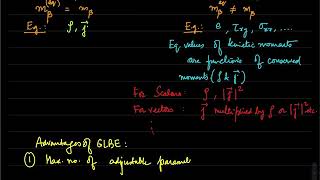 m_β^(eq) = m_β
m_β^eq ≠ m_β
Eg.: ρ, j⃗
Eg.: e, τxy, σxx, ....
Eq values of kinetic moments
are functions of conserved
moments (ρ & j⃗)
For Scalars : ρ, |j⃗|²
For vectors : j⃗ multiplied by ρ or |j⃗|² etc.
⋮
Advantages of GLBE:
① Max. no. of adjustable paramet